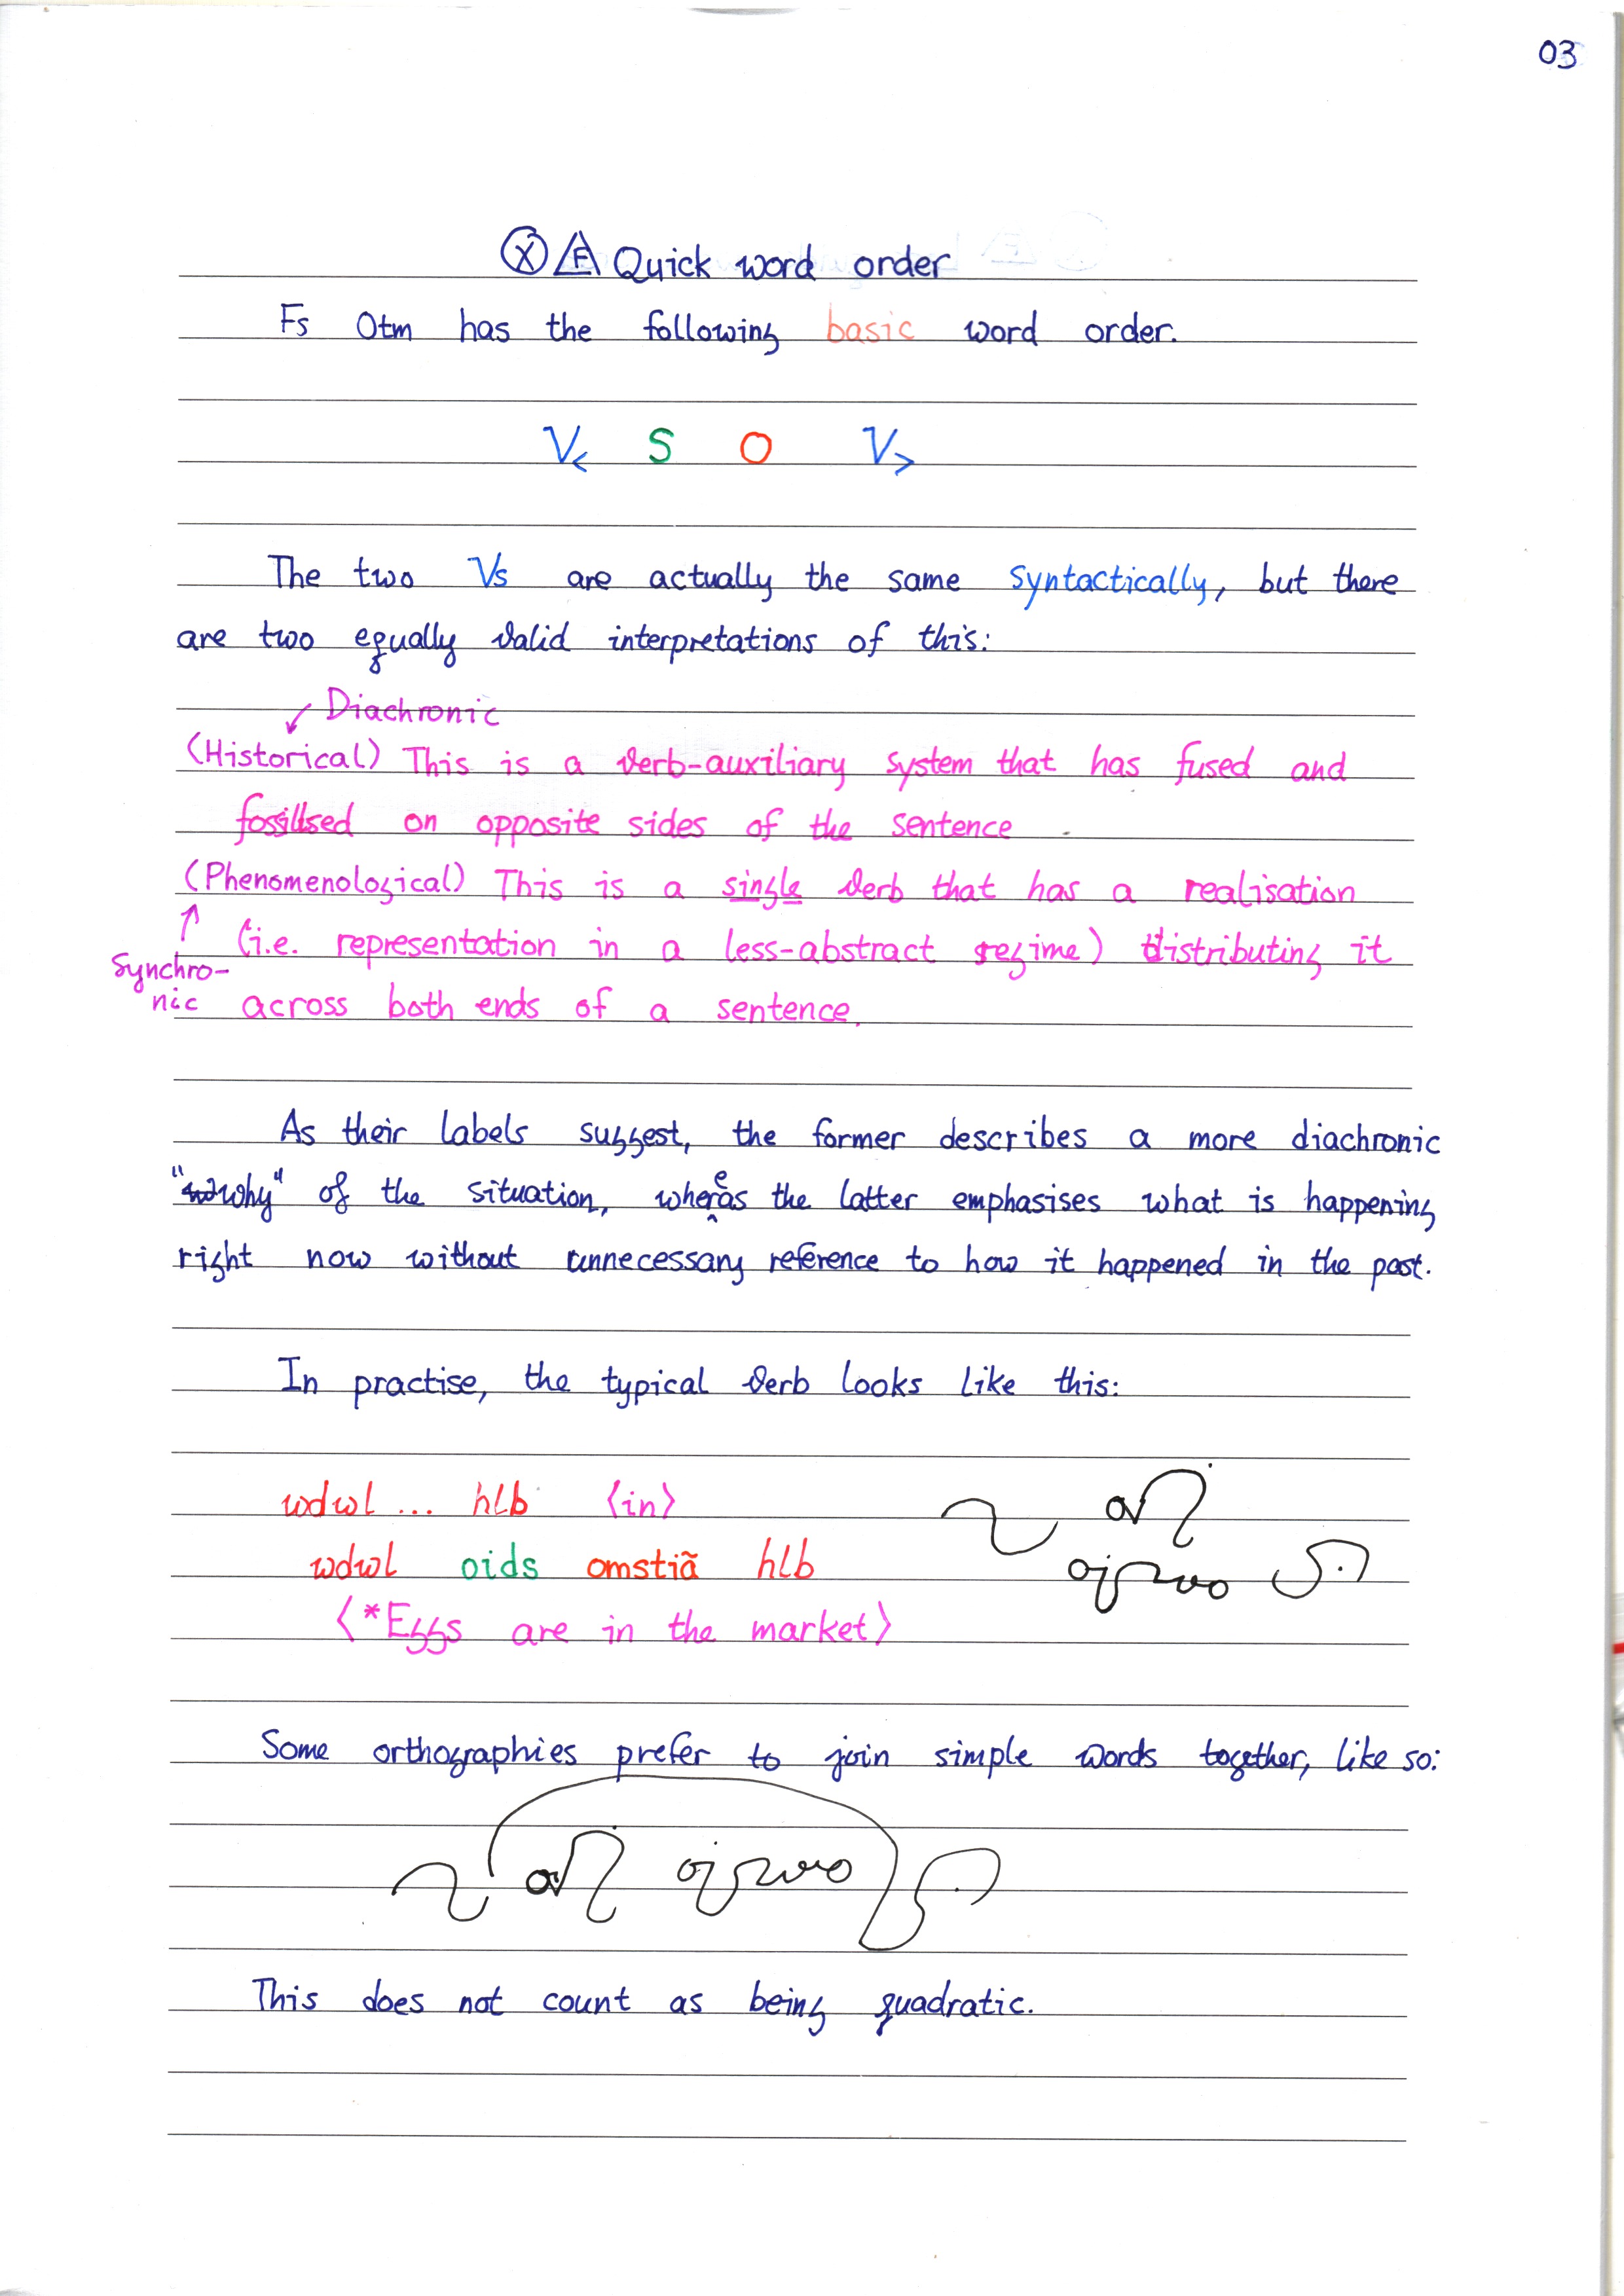 03
Ⓧ Quick word order
Fs Otm has the following basic word order.
V< S O V>
The two Vs are actually the same syntactically, but there
are two equally valid interpretations of this:
↙ Diachronic
(Historical) This is a verb-auxiliary system that has fused and
fossilised on opposite sides of the sentence.
(Phenomenological) This is a single verb that has a realisation
↑ (i.e. representation in a less-abstract regime) distributing it
Synchro-
nic across both ends of a sentence.
As their labels suggest, the former describes a more diachronic
"why" of the situation, whereas the latter emphasises what is happening
right now without unnecessary reference to how it happened in the past.
In practise, the typical verb looks like this:
wdwl ... hlb ⟨in⟩
wdwl oids omstiã hlb
⟨*Eggs are in the market⟩
Some orthographies prefer to join simple words together, like so:
This does not count as being quadratic.